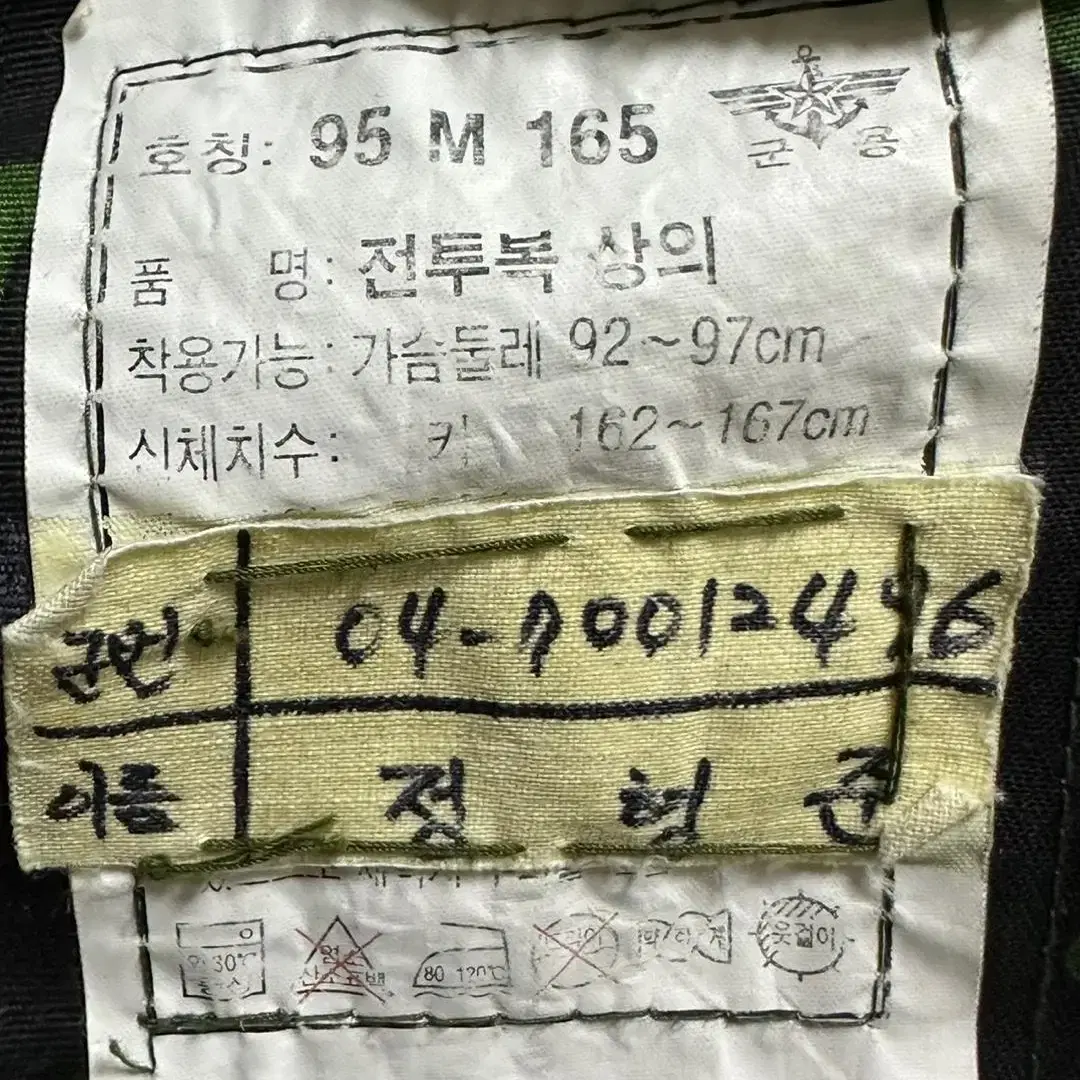 호칭: 95 M 165
군 공
품 명: 전투복 상의
착용가능: 가슴둘레 92~97cm
신체치수: 키 162~167cm
군번 04-70012446
이름 정 형 준
30℃
염소
80-120℃
옷걸이